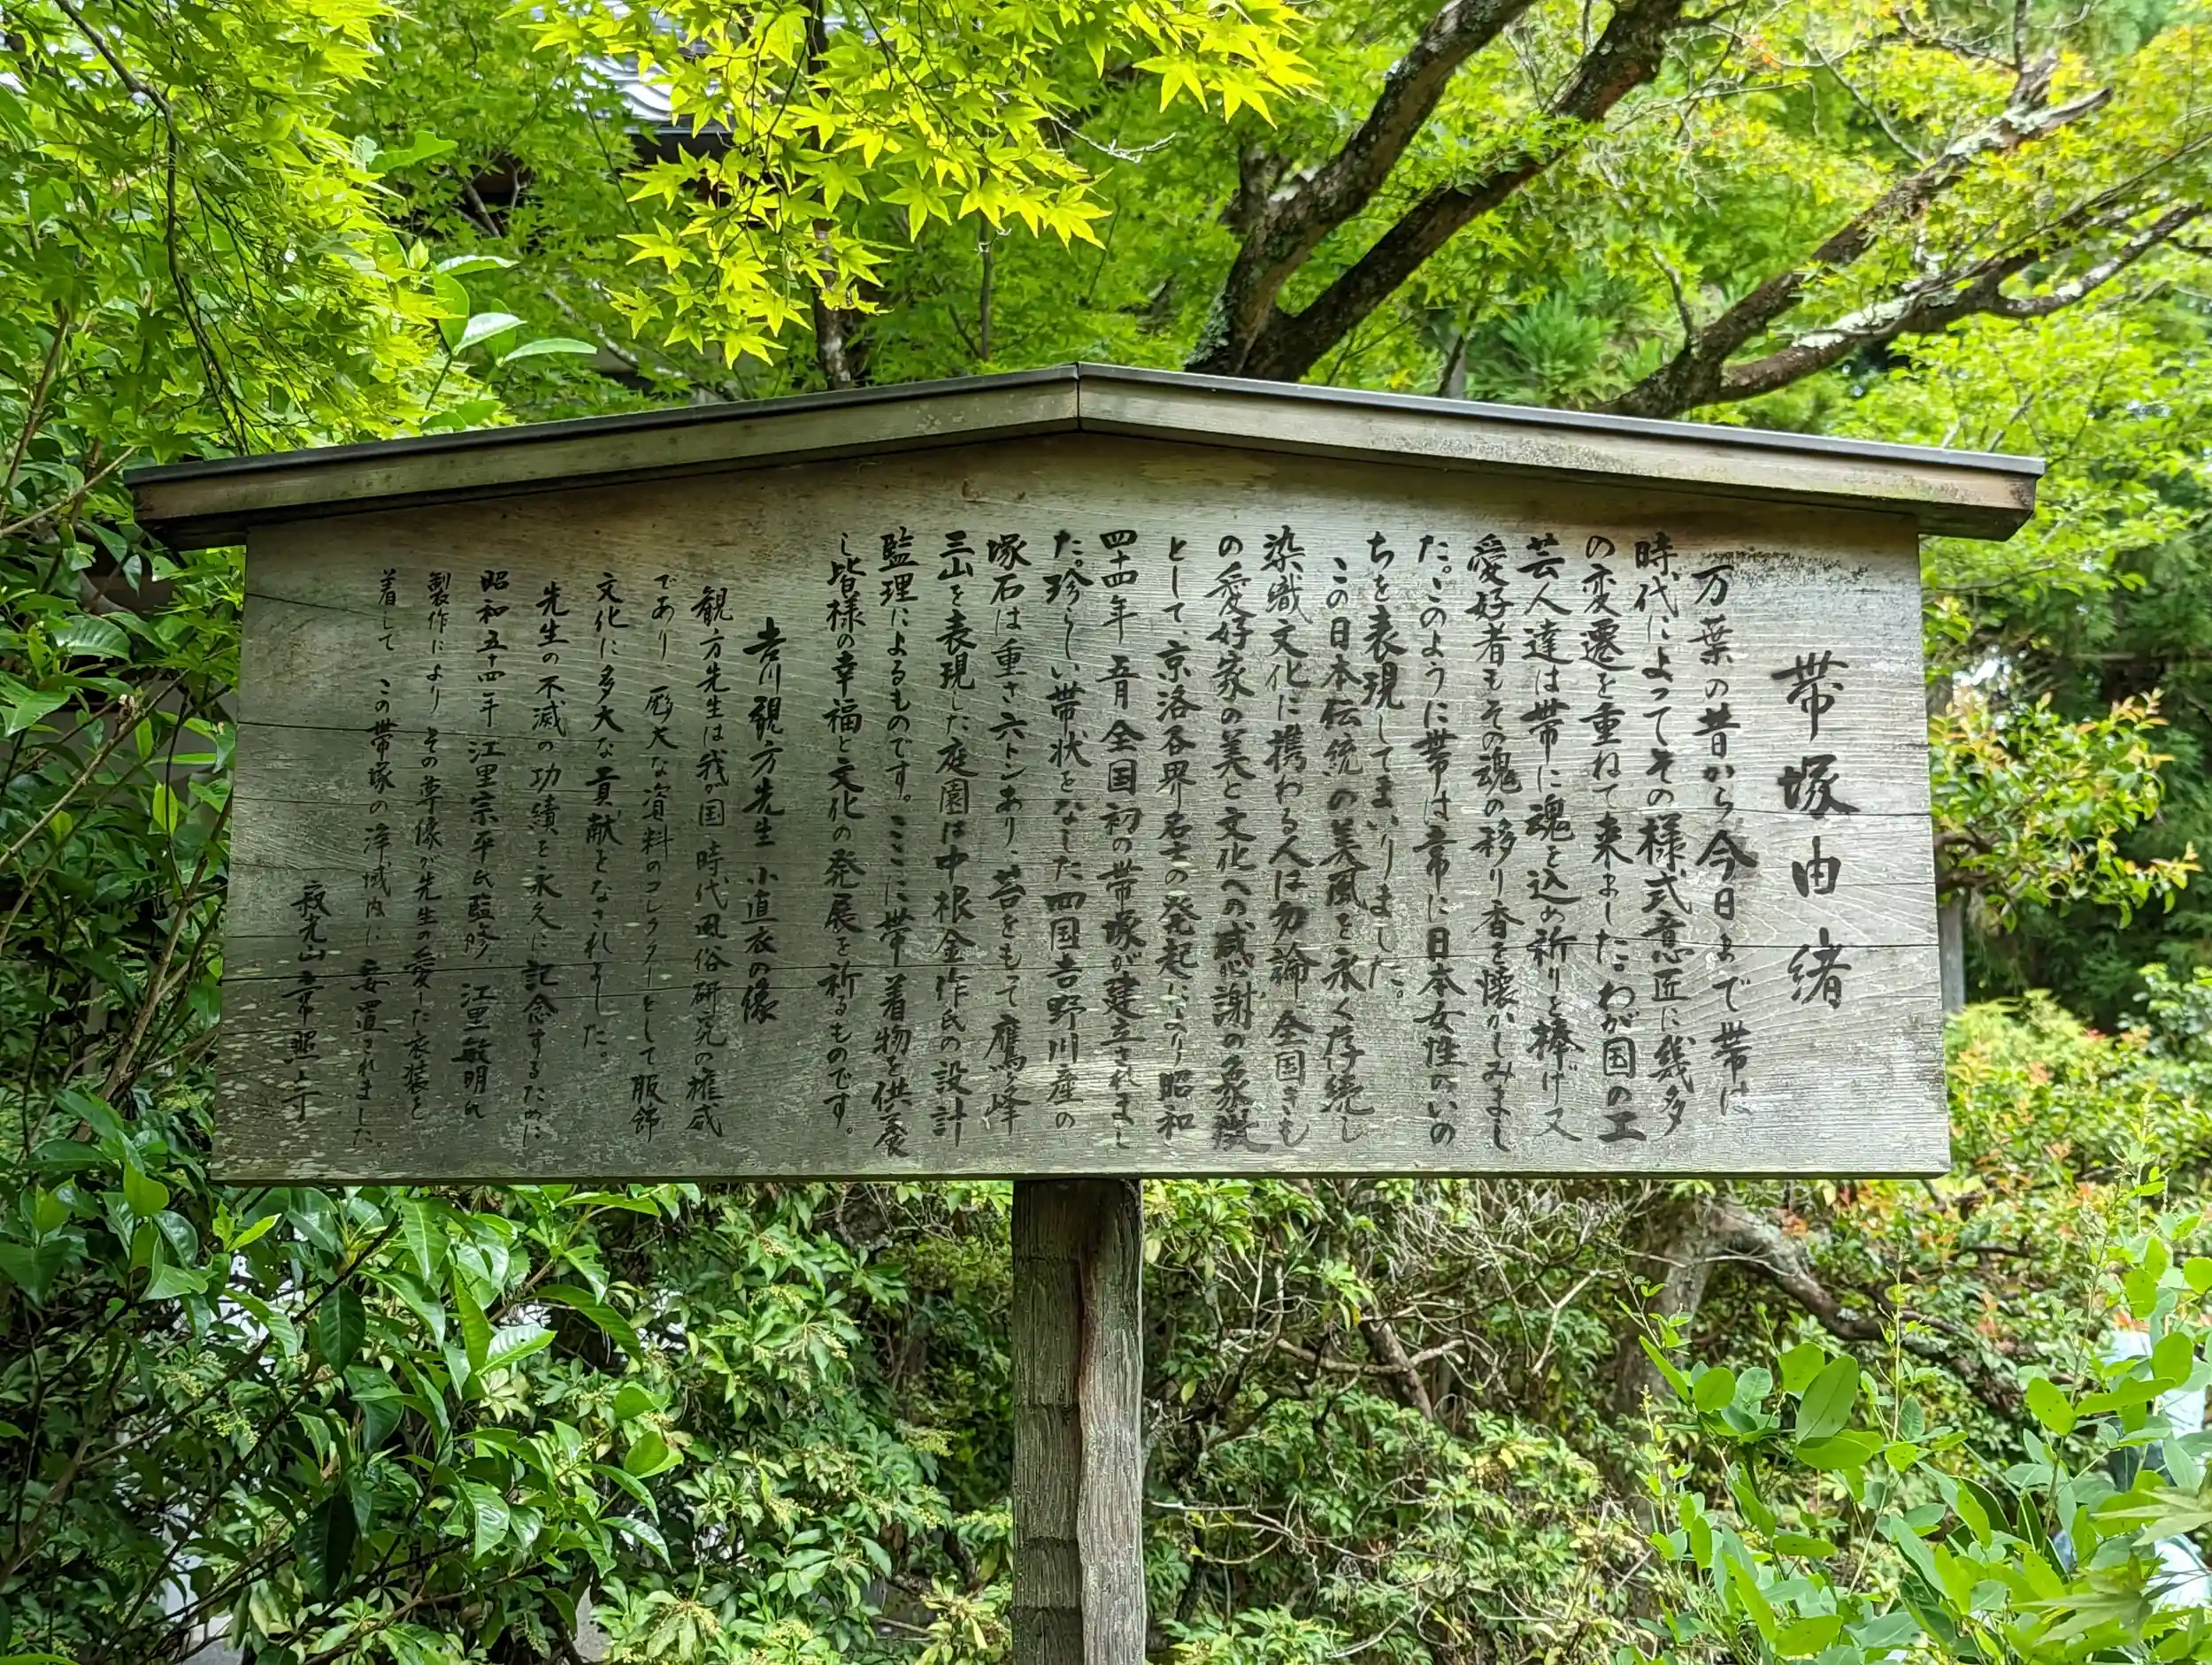 帯塚由緒
万葉の昔から今日まで帯は
時代によってその様式意匠に幾多
の変遷を重ねて来ました。わが国の工
芸人達は帯に魂を込め祈りを捧げ又
愛好者もその魂の移り香を懐かしみまし
た。このように帯は常に日本女性のいの
ちを表現してまいりました。
この日本伝統の美風を永く存続し
染織文化に携わる人は勿論全国きも
の愛好家の美と文化への感謝の象徴
として、京洛各界名士の発起により昭和
四十四年五月全国初の帯塚が建立されまし
た。珍らしい帯状をなした四国吉野川産の
塚石は重さ六トンあり苔をもて鷹ヶ峰
三山を表現した庭園は中根金作氏の設計
監理によるものです。ここに帯着物を供養
し皆様の幸福と文化の発展を祈るものです。
吉川観方先生 小直衣の像
観方先生は我が国時代風俗研究の権威
であり、厖大な資料のコレクターとして服飾
文化に多大な貢献をなされました。
先生の不滅の功績を永久に記念するために
昭和五十四年江里宗平氏監修、江里敏明氏
製作によりその尊像が先生の愛した衣装を
着してこの帯塚の浄域内に安置されました。
寂光山常照寺